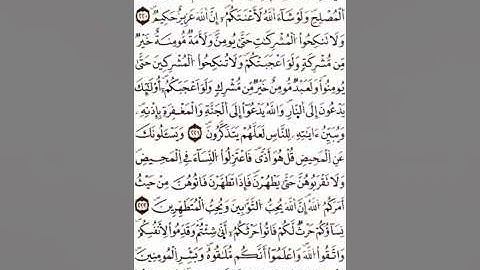 الْمُصْلِحِ وَلَوْ شَآءَ اَللَّهُ لَأَعْنَتَكُمْ إِنَّ اَللَّهَ عَزِيزٌ حَكِيمٌ ٢٢٠
وَلَا تَنكِحُوا اُلْمُشْرِكَٰتِ حَتَّىٰ يُومِنَّ وَلَأَمَةٌ مُّومِنَةٌ خَيْرٌ
مِّن مُّشْرِكَةٍ وَلَوَ اَعْجَبَتْكُمْ وَلَا تُنكِحُوا اُلْمُشْرِكِينَ حَتَّىٰ
يُومِنُوا وَلَعَبْدٌ مُّومِنٌ خَيْرٌ مِّن مُّشْرِكٍ وَلَوَ اَعْجَبَكُمْ أُوْلَٰٓئِكَ
يَدْعُونَ إِلَى اَلنَّارِ وَاللَّهُ يَدْعُوا إِلَى اَلْجَنَّةِ وَالْمَغْفِرَةِ بِإِذْنِهِ
وَيُبَيِّنُ ءَايَٰتِهِ لِلنَّاسِ لَعَلَّهُمْ يَتَذَكَّرُونَ ٢٢١ وَيَسْـَٔلُونَكَ
عَنِ اِلْمَحِيضِ قُلْ هُوَ أَذًى فَاعْتَزِلُوا اُلنِّسَآءَ فِى اِلْمَحِيضِ
وَلَا تَقْرَبُوهُنَّ حَتَّىٰ يَطْهُرْنَ فَإِذَا تَطَهَّرْنَ فَاتُوهُنَّ مِنْ حَيْثُ
أَمَرَكُمُ اُللَّهُ إِنَّ اَللَّهَ يُحِبُّ اُلتَّوَّٰبِينَ وَيُحِبُّ اُلْمُتَطَهِّرِينَ ٢٢٢
نِسَآؤُكُمْ حَرْثٌ لَّكُمْ فَاتُوا حَرْثَكُمُ أَنَّىٰ شِئْتُمْ وَقَدِّمُوا لِأَنفُسِكُمْ
وَاتَّقُوا اُللَّهَ وَاعْلَمُوا أَنَّكُم مُّلَٰقُوهُ وَبَشِّرِ اِلْمُومِنِينَ